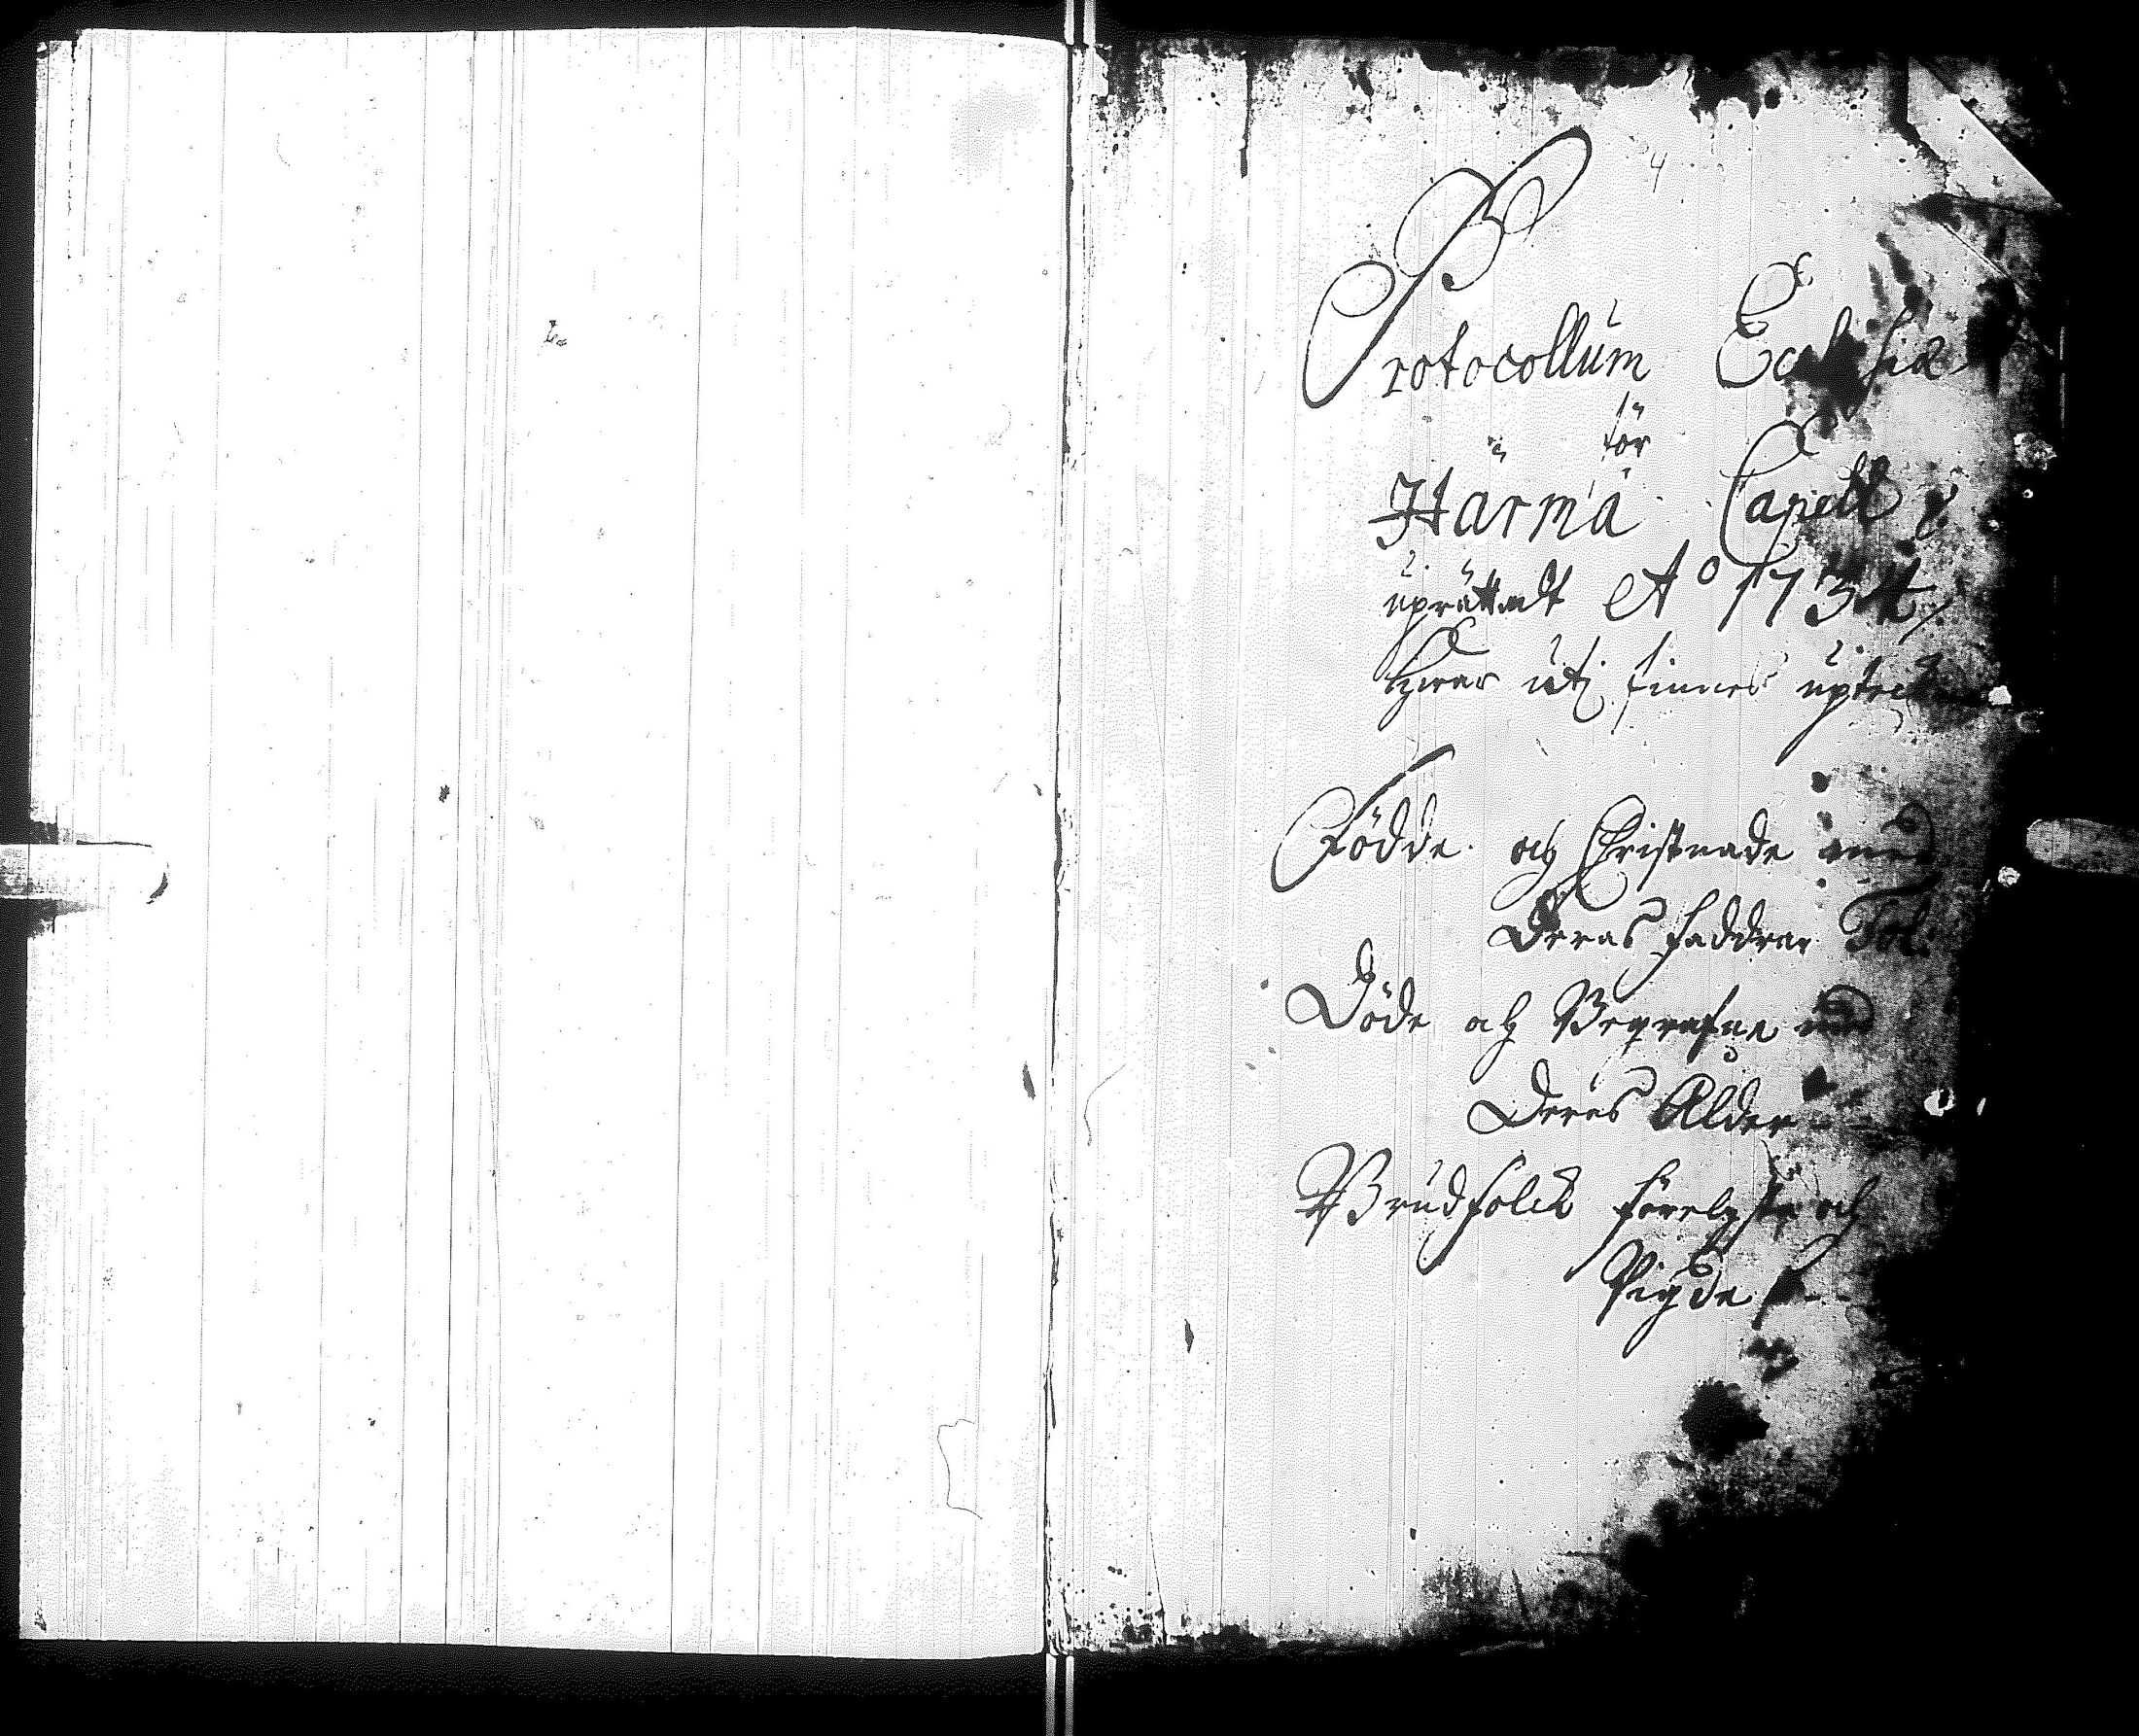 4
Protocollum Ecclesiæ
för
Härmä Capell
uprättadt Aº 1734
Hwar uti finnes
Födde och Christnade med
Deras faddrar Fol:
Döde och Begrafne med
Deras Ålder
Brudfolck förelyste och
Vigde